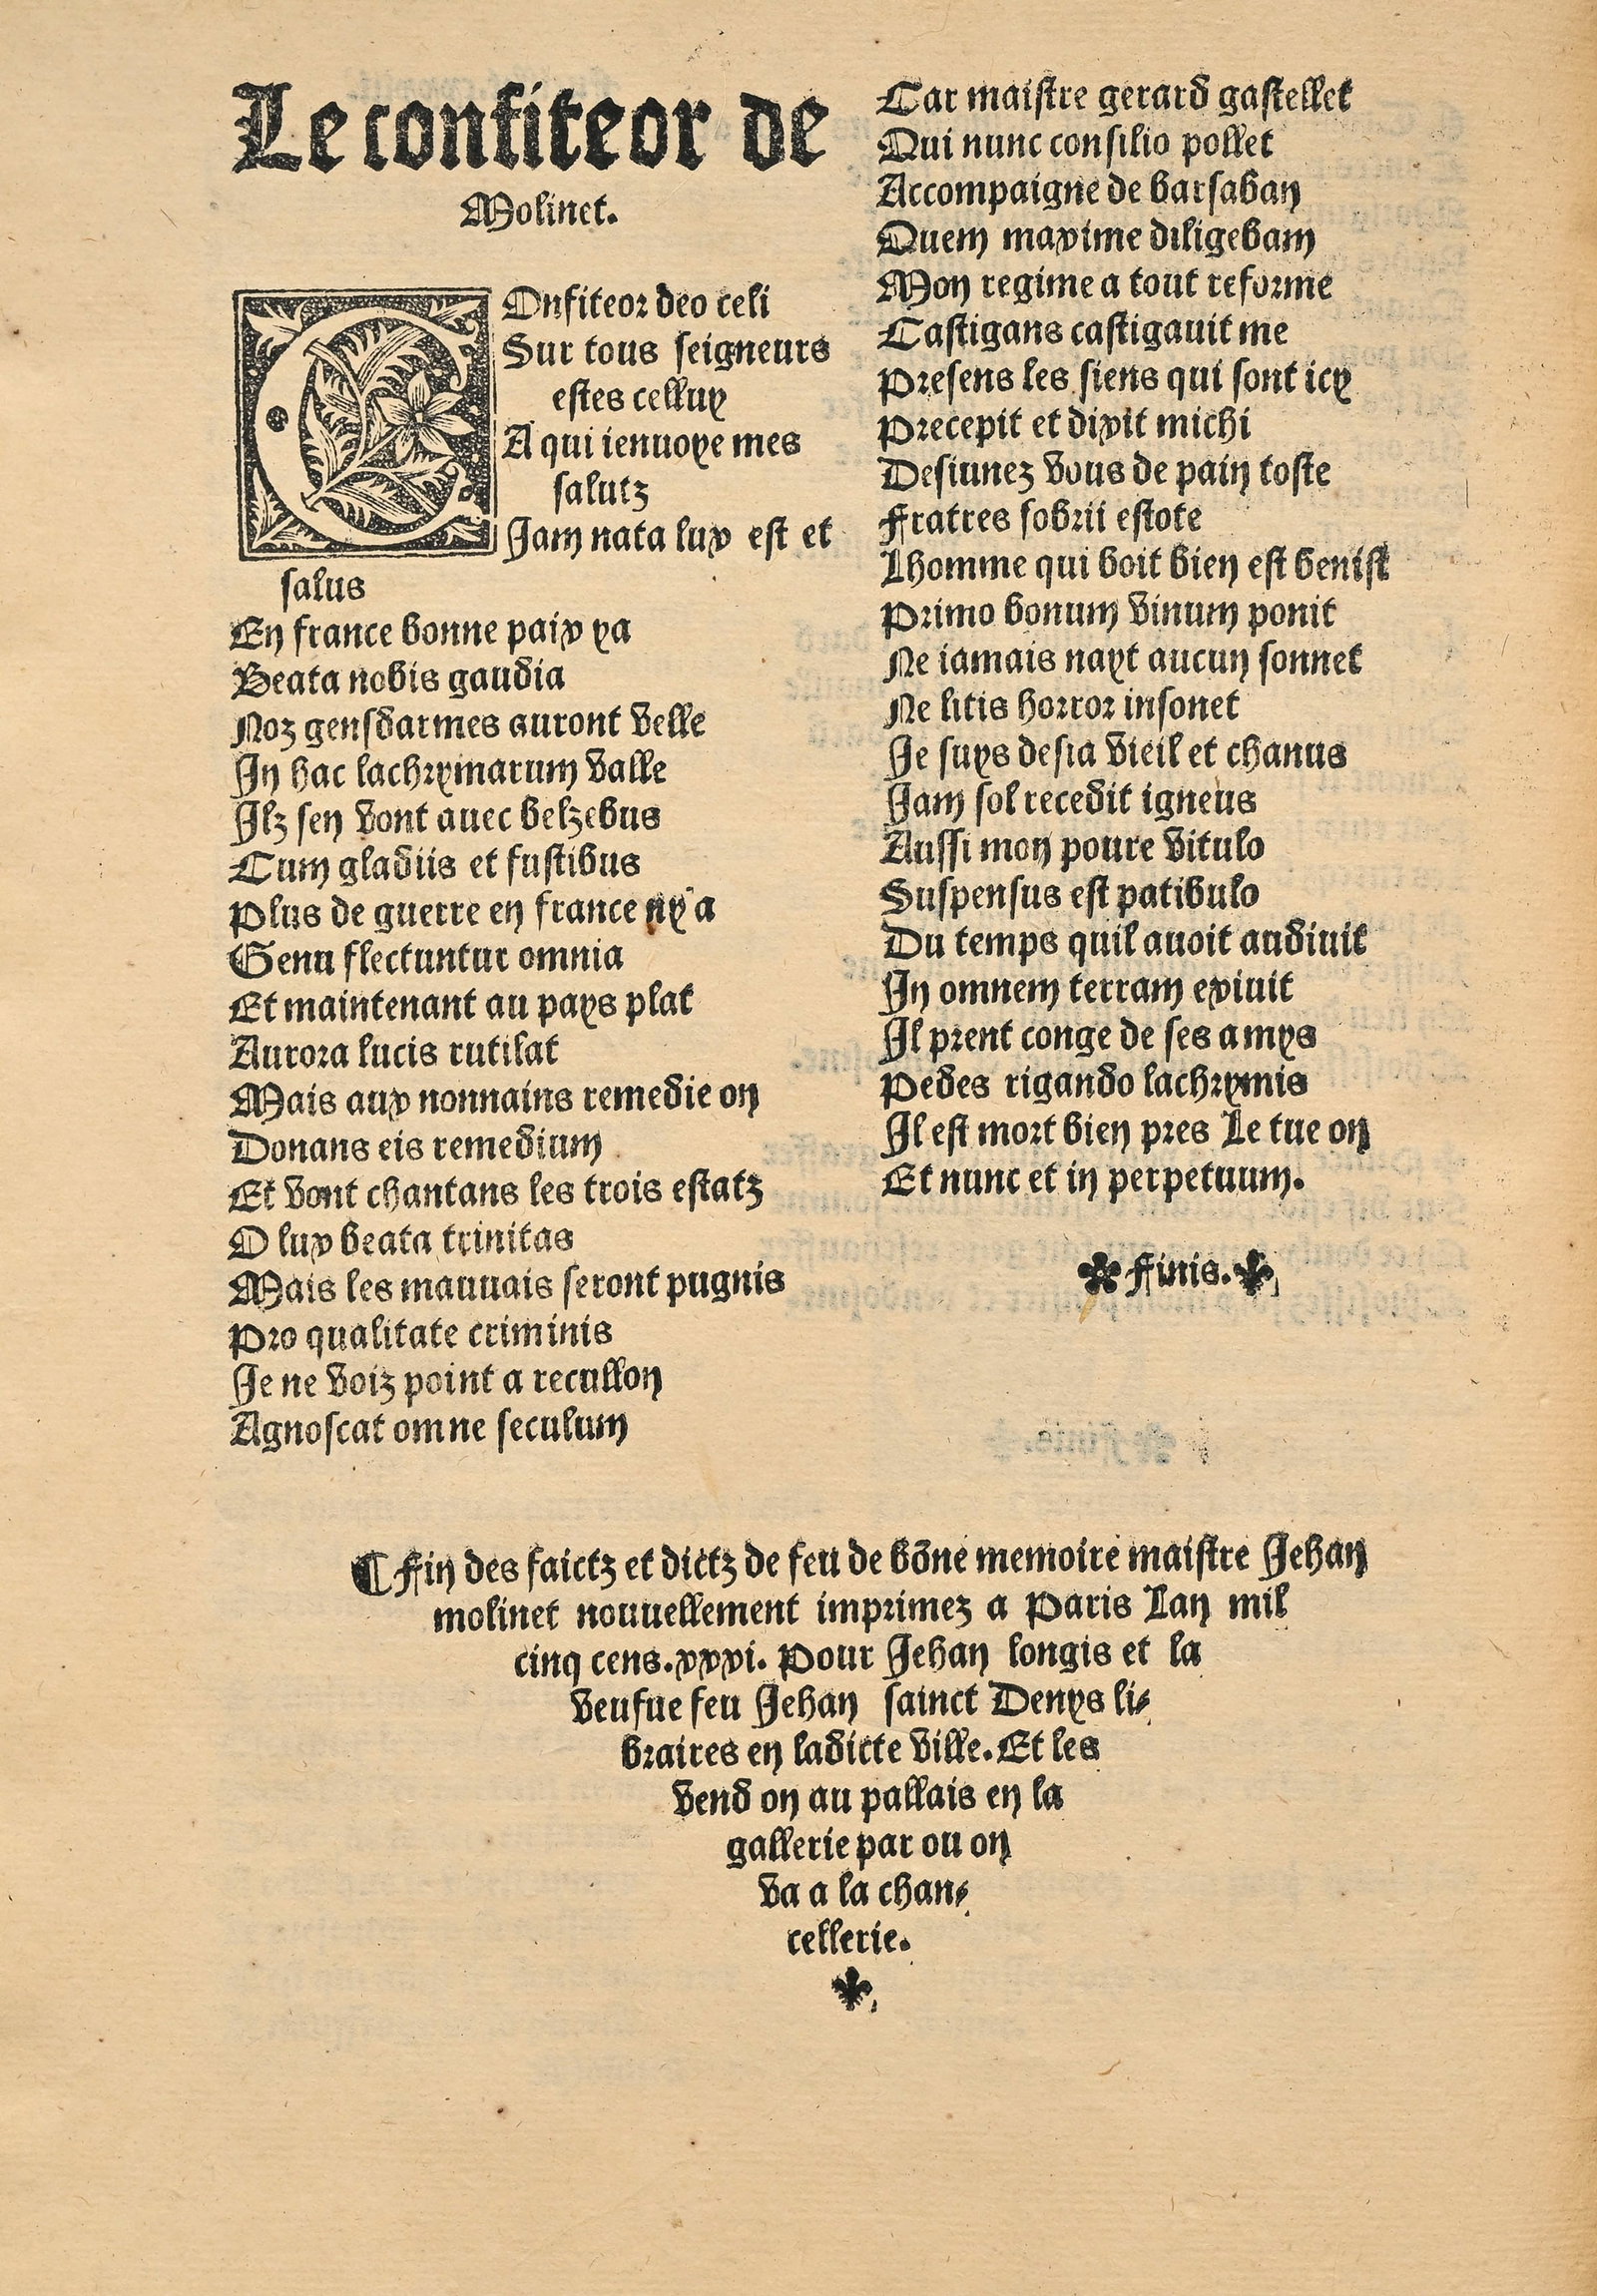 Le confiteor de
Molinet.
COnfiteor deo celi
Sur tous seigneurs
estes celluy
A qui ienuoye mes
salutz
Jam nata lux est et
salus
En france bonne paix ya
Beata nobis gaudia
Noz gensdarmes auront velle
In hac lachrymarum valle
Ilz sen vont auec belzebus
Cum gladiis et fustibus
Plus de guerre en france ny a
Genu flectuntur omnia
Et maintenant au pays plat
Aurora lucis rutilat
Mais aux nonnains remedie on
Donans eis remedium
Et vont chantans les trois estatz
O lux beata trinitas
Mais les mauuais seront pugnis
Pro qualitate criminis
Je ne voiz point a recullon
Agnoscat omne seculum
Car maistre gerard gastellet
Qui nunc consilio pollet
Accompaigne de barsaban
Quem maxime diligebam
Mon regime a tout reforme
Castigans castigauit me
Presens les siens qui sont icy
Precepit et dixit michi
Desiunez vous de pain toste
Fratres sobrii estote
Lhomme qui boit bien est benist
Primo bonum vinum ponit
Ne iamais nayt aucun sonnet
Ne litis horror insonet
Je suys desia vieil et chanus
Jam sol recedit igneus
Aussi mon poure vitulo
Suspensus est patibulo
Du temps quil auoit audiuit
In omnem terram exiuit
Il prent conge de ses amys
Pedes rigando lachrymis
Il est mort bien pres Le tue on
Et nunc et in perpetuum.
✤ Finis. ⚜
¶ Fin des faictz et dictz de feu de bōne memoire maistre Jehan
molinet nouuellement imprimez a Paris Lan mil
cinq cens.xxxi. Pour Jehan longis et la
veufue feu Jehan sainct Denys li⸗
braires en ladicte ville. Et les
vend on au pallais en la
gallerie par ou on
va a la chan⸗
cellerie.